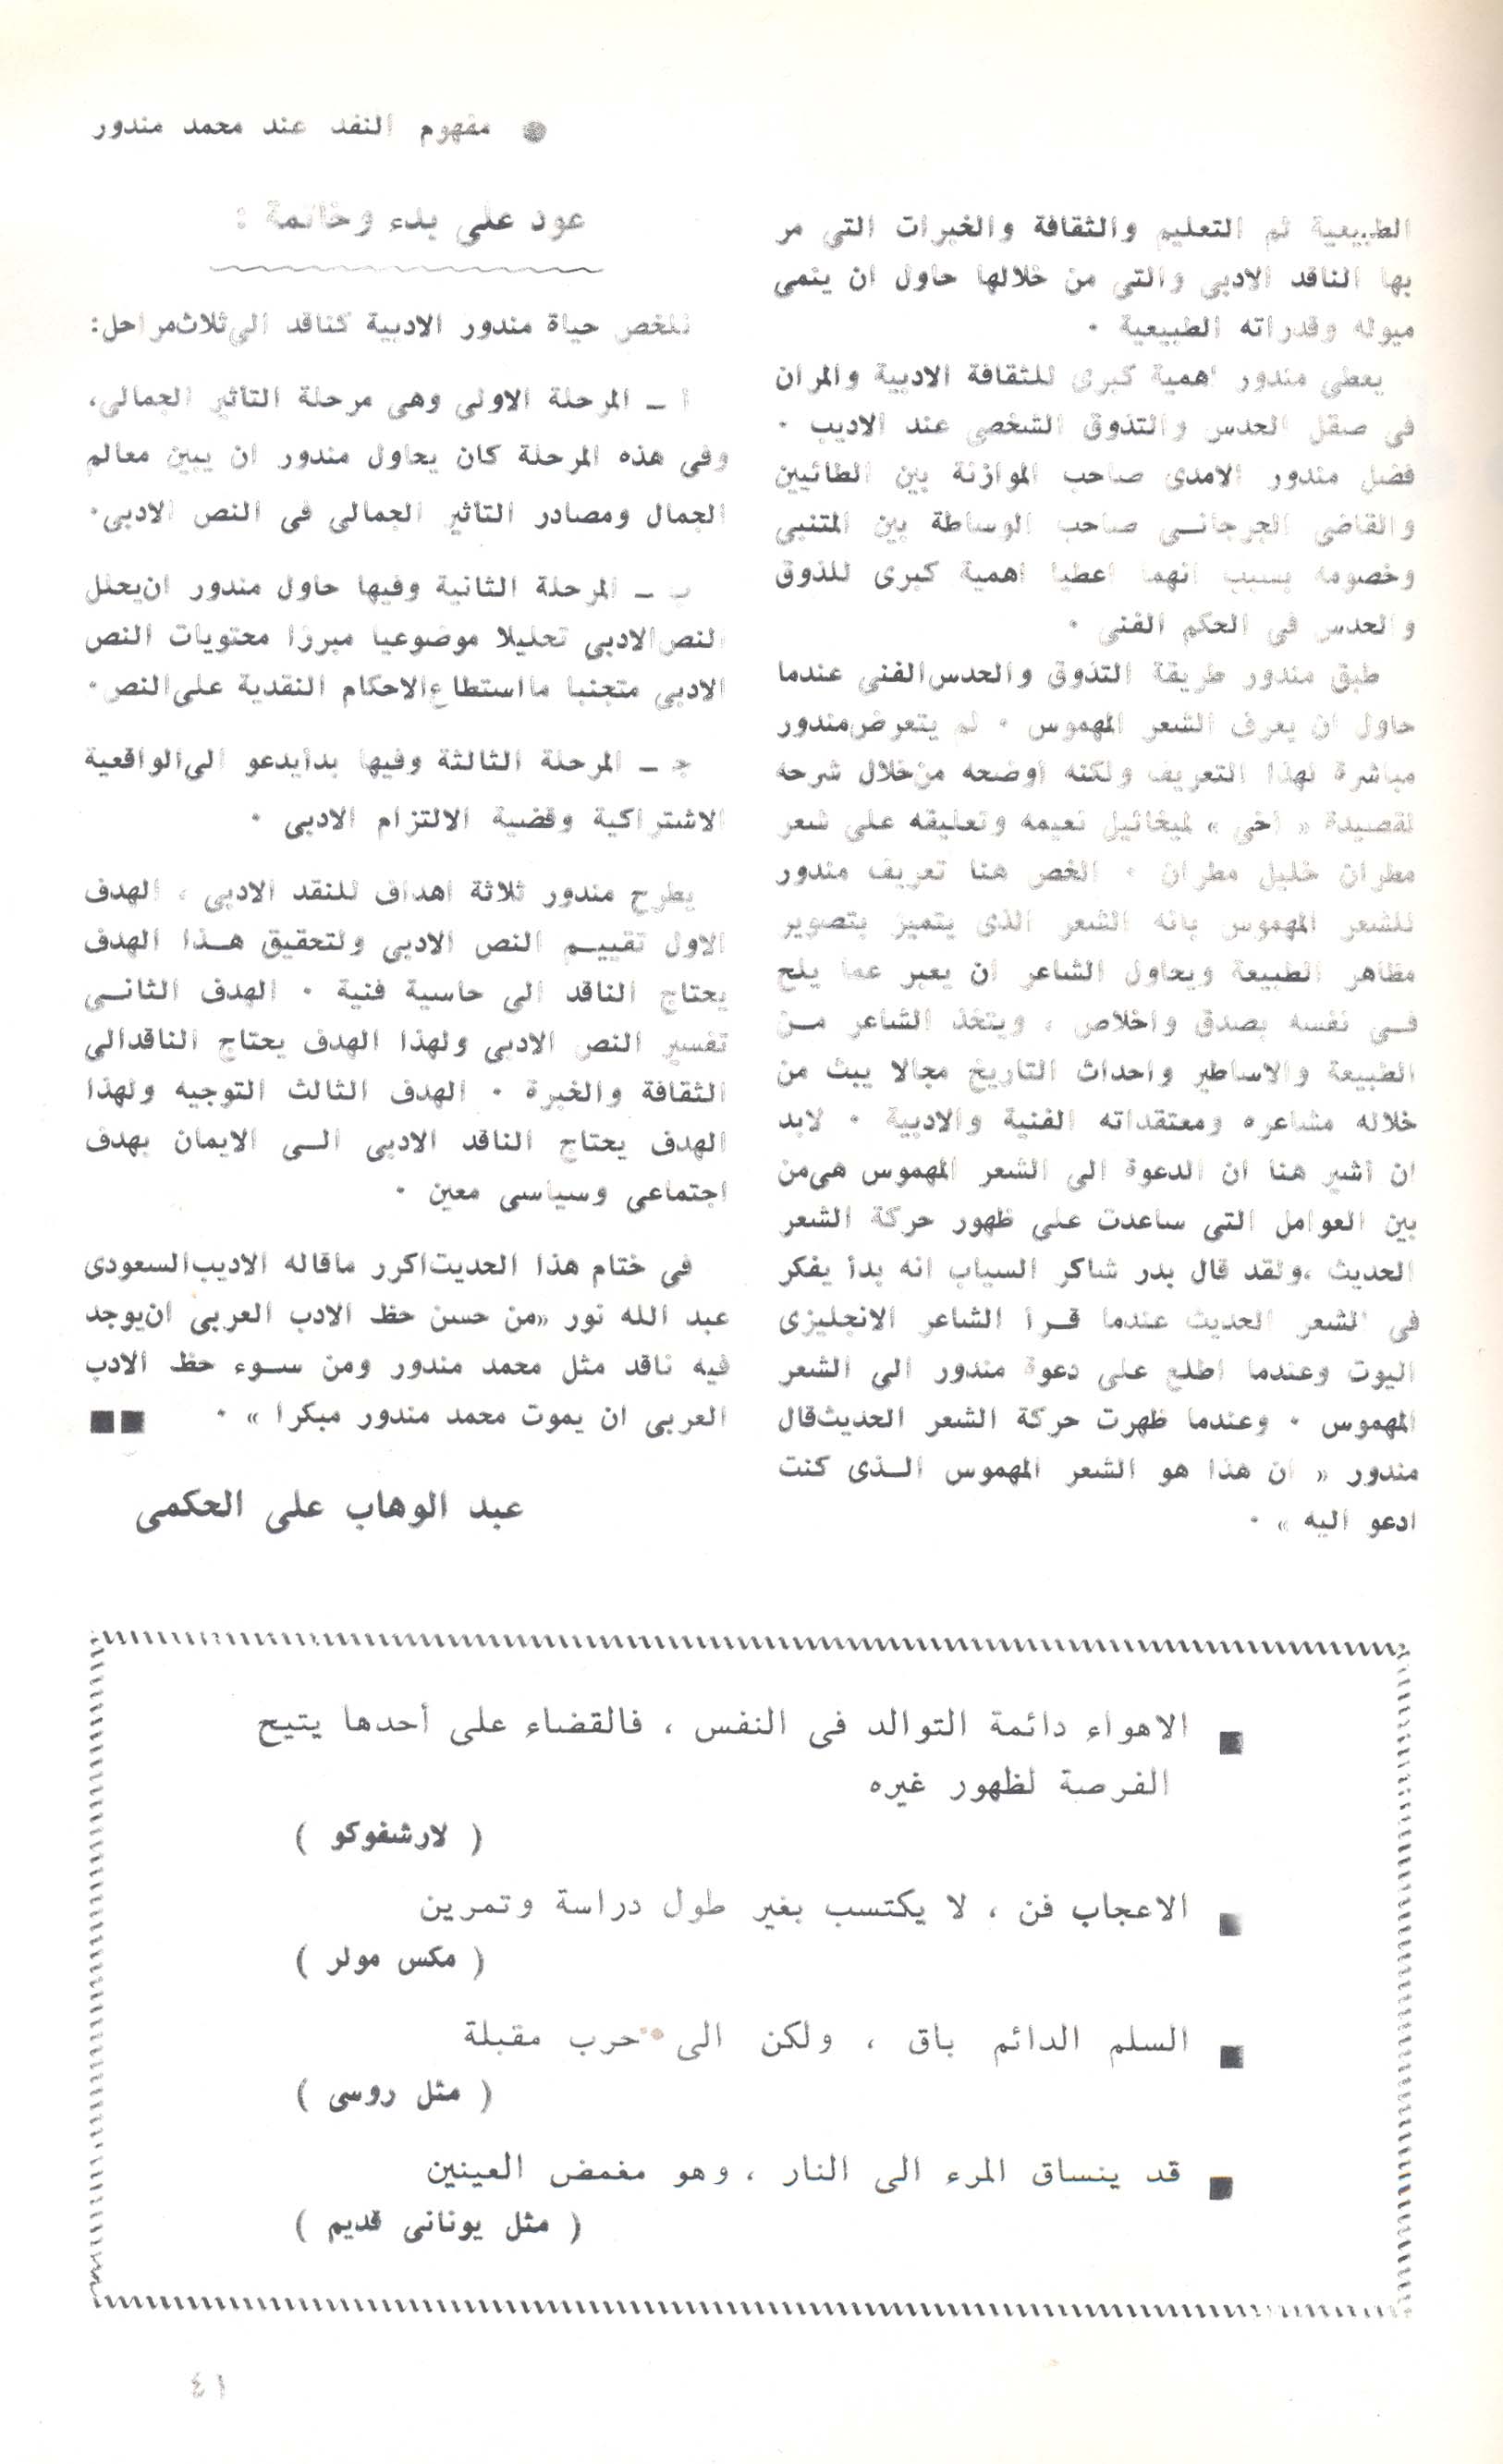 ● مفهوم النقد عند محمد مندور
الطبيعية ثم التعليم والثقافة والخبرات التى مر
بها الناقد الادبى والتى من خلالها حاول ان ينمى
ميوله وقدراته الطبيعية ·
يعطى مندور اهمية كبرى للثقافة الادبية والمران
فى صقل الحدس والتذوق الشخصى عند الاديب ·
فضل مندور الامدى صاحب الموازنة بين الطائيين
والقاضى الجرجانى صاحب الوساطة بين المتنبى
وخصومه بسبب انهما اعطيا اهمية كبرى للذوق
والحدس فى الحكم الفنى ·
طبق مندور طريقة التذوق والحدس الفنى عندما
حاول ان يعرف الشعر المهموس · لم يتعرض مندور
مباشرة لهذا التعريف ولكنه أوضحه من خلال شرحه
لقصيدة « اخى » لميخائيل نعيمه وتعليقه على شعر
مطران خليل مطران · الخص هنا تعريف مندور
للشعر المهموس بانه الشعر الذى يتميز بتصوير
مظاهر الطبيعة ويحاول الشاعر ان يعبر عما يلح
فى نفسه بصدق واخلاص ، ويتخذ الشاعر من
الطبيعة والاساطير واحداث التاريخ مجالا يبث من
خلاله مشاعره ومعتقداته الفنية والادبية · لابد
ان أشير هنا ان الدعوة الى الشعر المهموس هى من
بين العوامل التى ساعدت على ظهور حركة الشعر
الحديث ،ولقد قال بدر شاكر السياب انه بدأ يفكر
فى الشعر الحديث عندما قرأ الشاعر الانجليزى
اليوت وعندما اطلع على دعوة مندور الى الشعر
المهموس · وعندما ظهرت حركة الشعر الحديث قال
مندور « ان هذا هو الشعر المهموس الذى كنت
ادعو اليه » ·
عود على بدء وخاتمة :
نلخص حياة مندور الادبية كناقد الى ثلاث مراحل:
أ ـ المرحلة الاولى وهى مرحلة التأثير الجمالى،
وفى هذه المرحلة كان يحاول مندور ان يبين معالم
الجمال ومصادر التأثير الجمالى فى النص الادبى·
ب ـ المرحلة الثانية وفيها حاول مندور ان يحلل
النص الادبى تحليلا موضوعيا مبرزا محتويات النص
الادبى متجنبا ما استطاع الاحكام النقدية على النص·
جـ ـ المرحلة الثالثة وفيها بدأ يدعو الى الواقعية
الاشتراكية وقضية الالتزام الادبى ·
يطرح مندور ثلاثة اهداف للنقد الادبى ، الهدف
الاول تقييم النص الادبى ولتحقيق هذا الهدف
يحتاج الناقد الى حاسية فنية · الهدف الثانى
تفسير النص الادبى ولهذا الهدف يحتاج الناقد الى
الثقافة والخبرة · الهدف الثالث التوجيه ولهذا
الهدف يحتاج الناقد الادبى الى الايمان بهدف
اجتماعى وسياسى معين ·
فى ختام هذا الحديث اكرر ماقاله الاديب السعودى
عبد الله نور «من حسن حظ الادب العربى ان يوجد
فيه ناقد مثل محمد مندور ومن سوء حظ الادب
العربى ان يموت محمد مندور مبكرا » · ■■
عبد الوهاب على الحكمى
■ الاهواء دائمة التوالد فى النفس ، فالقضاء على أحدها يتيح
الفرصة لظهور غيره
( لارشفوكو )
■ الاعجاب فن ، لا يكتسب بغير طول دراسة وتمرين
( مكس مولر )
■ السلم الدائم باق ، ولكن الى حرب مقبلة
( مثل روسى )
■ قد ينساق المرء الى النار ، وهو مغمض العينين
( مثل يونانى قديم )
٤١